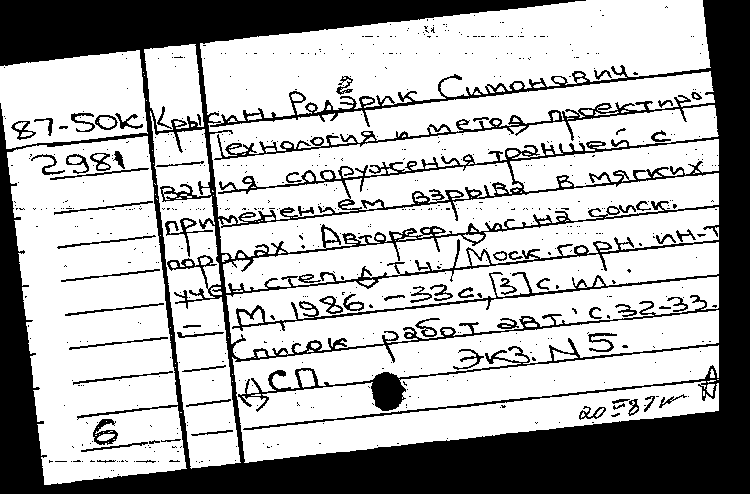 87-50К Крысин, Родэрик Симонович.
2981 Технология и метод проектиро-
вания сооружения траншей с
применением взрыва в мягких
породах: Автореф. дис. на соиск.
учен. степ. д.т.н. / Моск. горн. ин-т
- М., 1986. - 33 с., [3] с. ил.
Список работ авт.: с. 32-33.
ДСП. Экз. N 5.
6